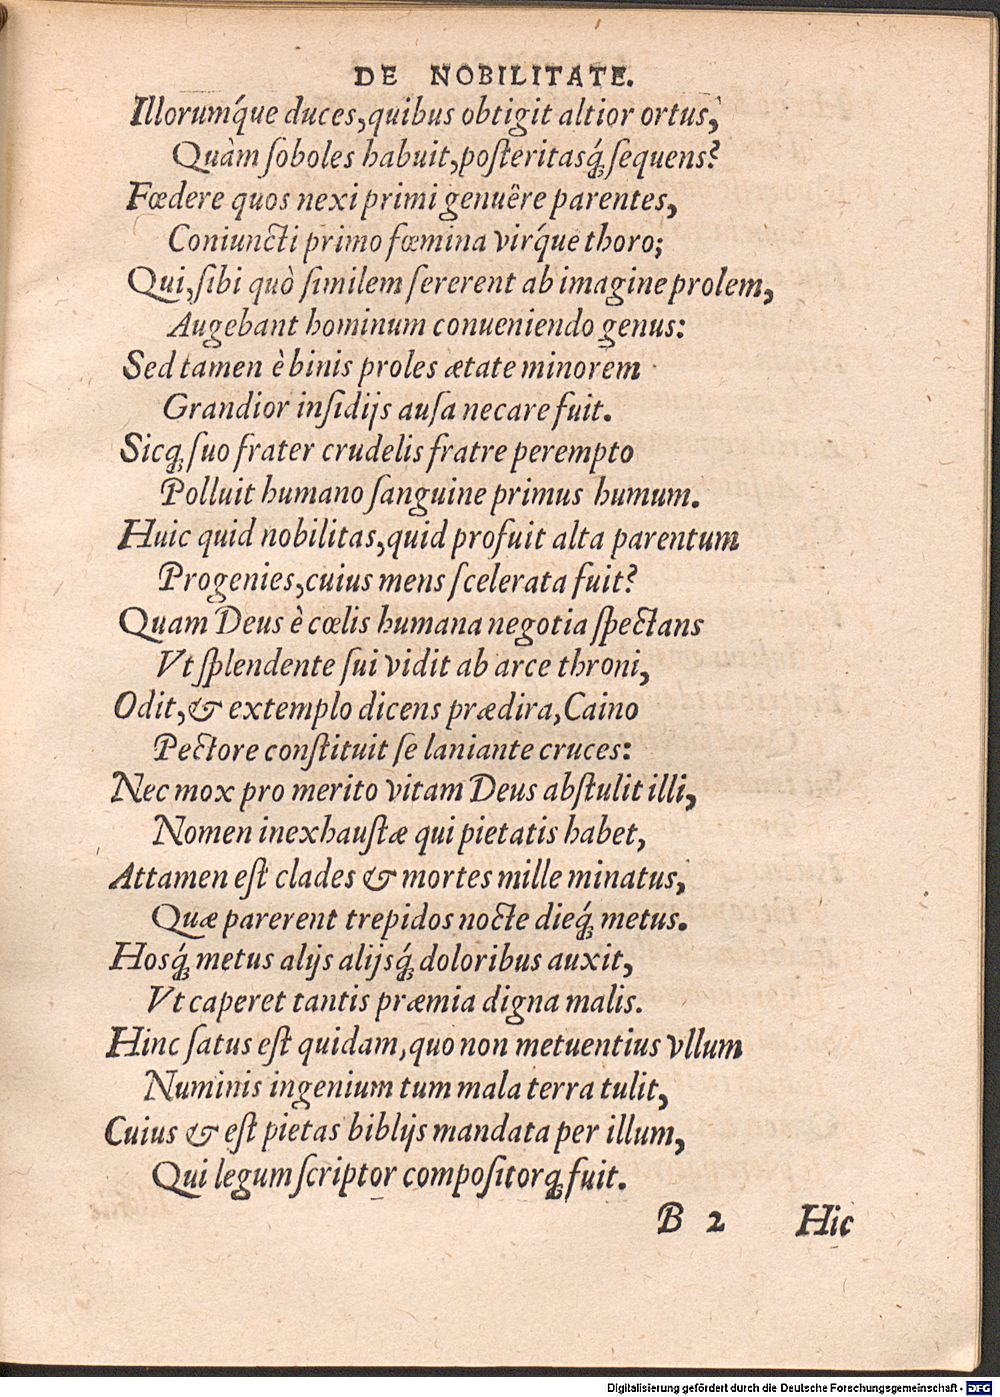 DE NOBILITATE.
Illorumq́ue duces, quibus obtigit altior ortus,
Quàm ſoboles habuit, poſteritasq́; ſequens?
Fœdere quos nexi primi genuêre parentes,
Coniuncti primo fœmina virq́ue thoro;
Qui, ſibi quò ſimilem ſererent ab imagine prolem,
Augebant hominum conueniendo genus:
Sed tamen è binis proles ætate minorem
Grandior inſidijs auſa necare fuit.
Sicq; ſuo frater crudelis fratre perempto
Polluit humano ſanguine primus humum.
Huic quid nobilitas, quid profuit alta parentum
Progenies, cuius mens ſcelerata fuit?
Quam Deus è cœlis humana negotia ſpectans
Vt ſplendente ſui vidit ab arce throni,
Odit, & extemplo dicens prædira, Caino
Pectore conſtituit ſe laniante cruces:
Nec mox pro merito vitam Deus abſtulit illi,
Nomen inexhauſtæ qui pietatis habet,
Attamen eſt clades & mortes mille minatus,
Quæ parerent trepidos nocte dieq́; metus.
Hosq́; metus alijs alijsq́; doloribus auxit,
Vt caperet tantis præmia digna malis.
Hinc ſatus eſt quidam, quo non metuentius vllum
Numinis ingenium tum mala terra tulit,
Cuius & eſt pietas biblijs mandata per illum,
Qui legum ſcriptor compoſitorq; fuit.
B 2 Hic
Digitalisierung gefördert durch die Deutsche Forschungsgemeinschaft - DFG